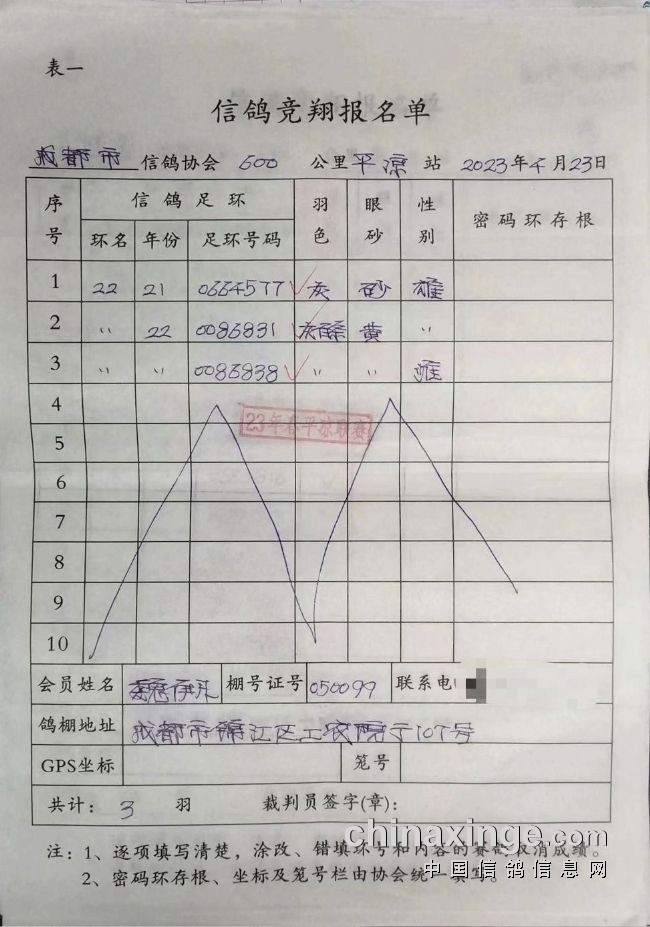 表一
信鸽竞翔报名单
成都市 信鸽协会 500 公里 平凉 站 2023年4月23日
序号 信鸽足环 羽色 眼砂 性别 密码环存根
环名 年份 足环号码
1 22 21 0664577 灰 砂 雄
2 〃 22 0086831 黄 〃
3 〃 〃 0086838 〃 〃
4
23年春平凉联赛
5
6
7
8
9
10
会员姓名 魏 棚号证号 050099 联系电
鸽棚地址 成都市锦江区工农院子107号
GPS坐标 笼号
共计: 3 羽 裁判员签字(章):
注: 1、逐项填写清楚, 涂改、错填环号和内容的赛鸽取消成绩。
2、密码环存根、坐标及笼号栏由协会统一填写。
chinaxinge.com
中国信鸽信息网